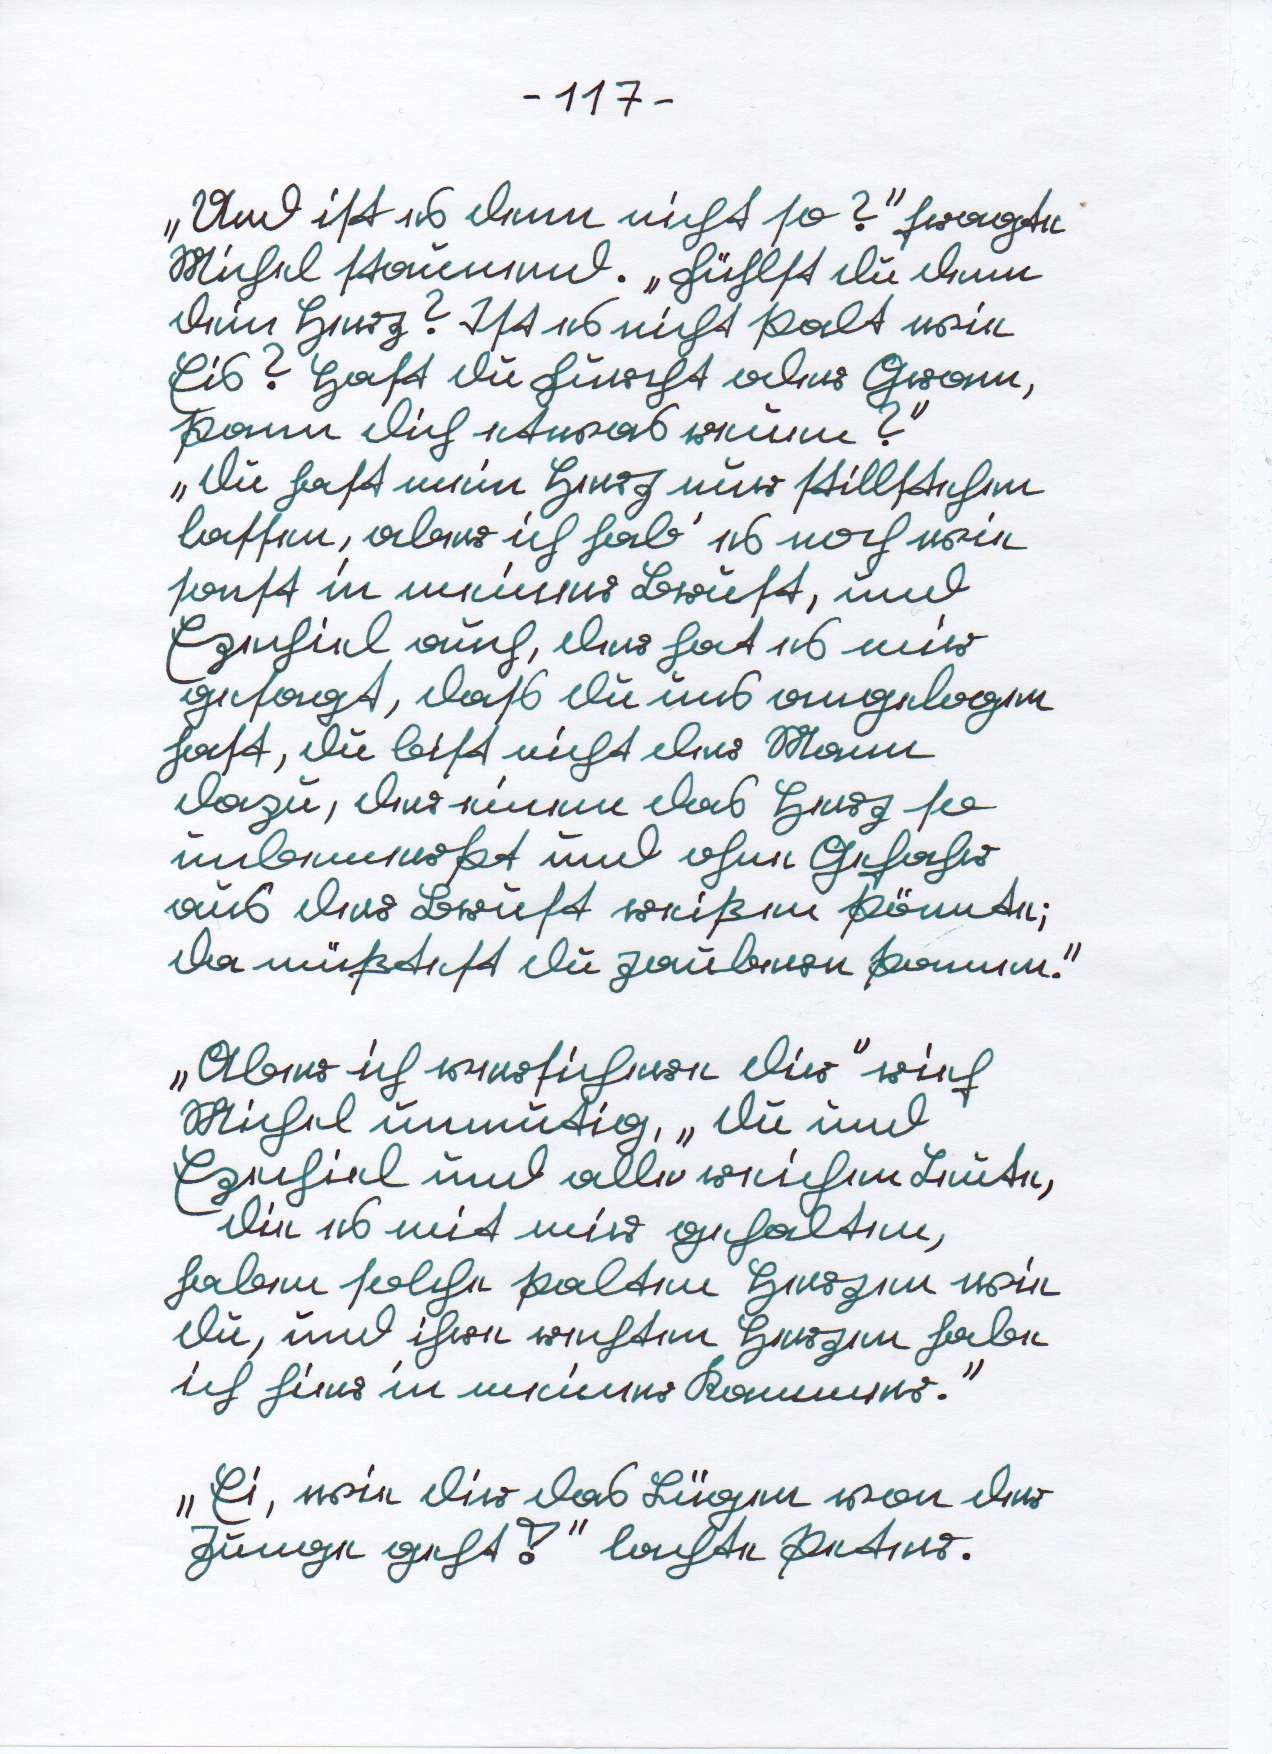 - 117 -
„Und ist es denn nicht so?" fragte
Michel staunend. „Fühlst du denn
dein Herz? Ist es nicht kalt wie
Eis? Hast du Furcht oder Gram,
kann dich etwas reuen?"
„Du hast mein Herz nur stillstehen
lassen, aber ich hab' es noch wie
sonst in meiner Brust, und
Ezechiel auch, der hat es mir
gesagt, daß du uns angelogen
hast, du bist nicht der Mann
dazu, der einem das Herz so
unbemerkt und ohne Gefahr
aus der Brust reißen könnte;
da müßtest du zaubern können."
„Aber ich versichere dir" rief
Michel unmutig, „du und
Ezechiel und alle reichen Leute,
die es mit mir gehalten,
haben solche kalten Herzen wie
du, und ihre rechten Herzen habe
ich hier in meiner Kammer."
„Ei, wie dir das Lügen von der
Zunge geht!" lachte Peter.